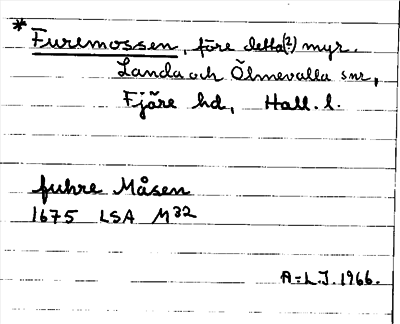 * Furemossen, före detta(?) myr.
Landa och Ölmevalla snr,
Fjäre hd, Hall. l.
fuhre Måsen
1675 LSA M32
A-L.J. 1966.